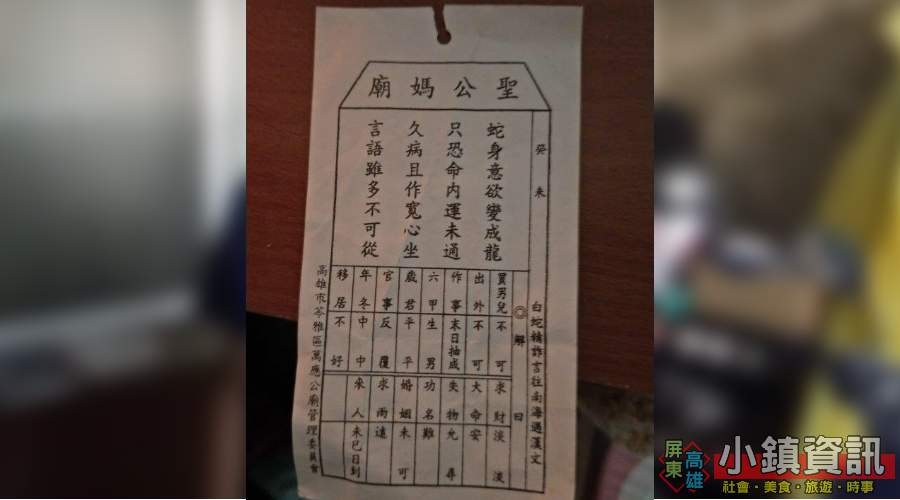 聖公媽廟
癸未
白蛇精詐言往南海遇漢文
蛇身意欲變成龍
只恐命內運未通
久病且作寬心坐
言語雖多不可從
◎解曰
買男兒不可
出外不可
作事末日抽成
六甲生男
歲君平平
官事反覆
年冬中中
移居不好
求財淡淡
大命安
失物允尋
功名難
婚姻未可
求雨遠
來人未巳日到
高雄市苓雅區萬應公廟管理委員會
屏東
高雄
小鎮資訊
社會・美食・旅遊・時事